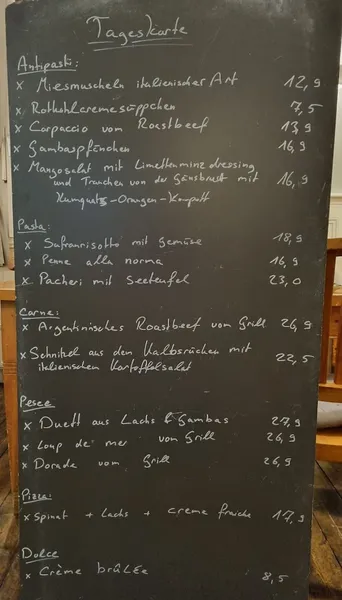 Tageskarte
Antipasti:
x Miesmuscheln italienischer Art 12,9
x Rotkohlcremesüppchen 7,5
x Carpaccio vom Roastbeef 13,9
x Gambaspfänchen 16,9
x Mangosalat mit Limettenminzdressing
und Tranchen von der Gänsbrust mit 16,9
Kumquats-Orangen-Kompott
Pasta:
x Safranrisotto mit Gemüse 18,9
x Penne alla norma 16,9
x Pacheri mit Seeteufel 23,0
Carne:
x Argentinisches Roastbeef vom Grill 26,9
x Schnitzel aus den Kalbsrücken mit
italienischen Kartoffelsalat 22,5
Pesce
x Duett aus Lachs & Gambas 27,9
x Loup de mer vom Grill 26,9
x Dorade vom Grill 26,9
Pizza:
x Spinat + Lachs + creme fraiche 17,9
Dolce
x Crème brûlée 8,5